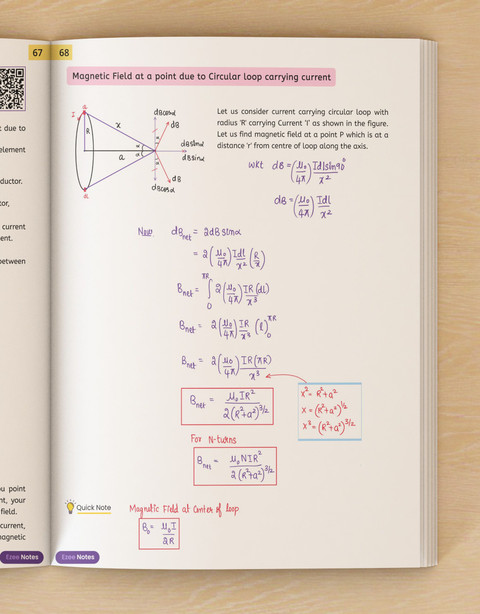 67
68
t due to
element
ductor.
tor,
current
ent.
between
u point
nt, your
field.
current,
agnetic
Ezee Notes
Magnetic Field at a point due to Circular loop carrying current
I
R
x
a
α
α
dBcosα
dB
dBsinα
dBsinα
dB
dBcosα
Let us consider current carrying circular loop with
radius 'R' carrying Current 'I' as shown in the figure.
Let us find magnetic field at a point P which is at a
distance 'r' from centre of loop along the axis.
WKT dB = (μ₀/4π) Idlsin90°/x²
dB = (μ₀/4π) Idl/x²
Now dBnet = 2dBsinα
= 2(μ₀/4π) Idl/x² (R/x)
Bnet = ∫₀^πR 2(μ₀/4π) IR(dl)/x³
Bnet = 2(μ₀/4π) IR/x³ (l)₀^πR
Bnet = 2(μ₀/4π) IR(πR)/x³
x² = R²+a²
x = (R²+a²)^1/2
x³ = (R²+a²)^3/2
Bnet = μ₀IR²/2(R²+a²)^3/2
For N-turns
Bnet = μ₀NIR²/2(R²+a²)^3/2
Quick Note
Magnetic Field at Center of loop
B₀ = μ₀I/2R
Ezee Notes